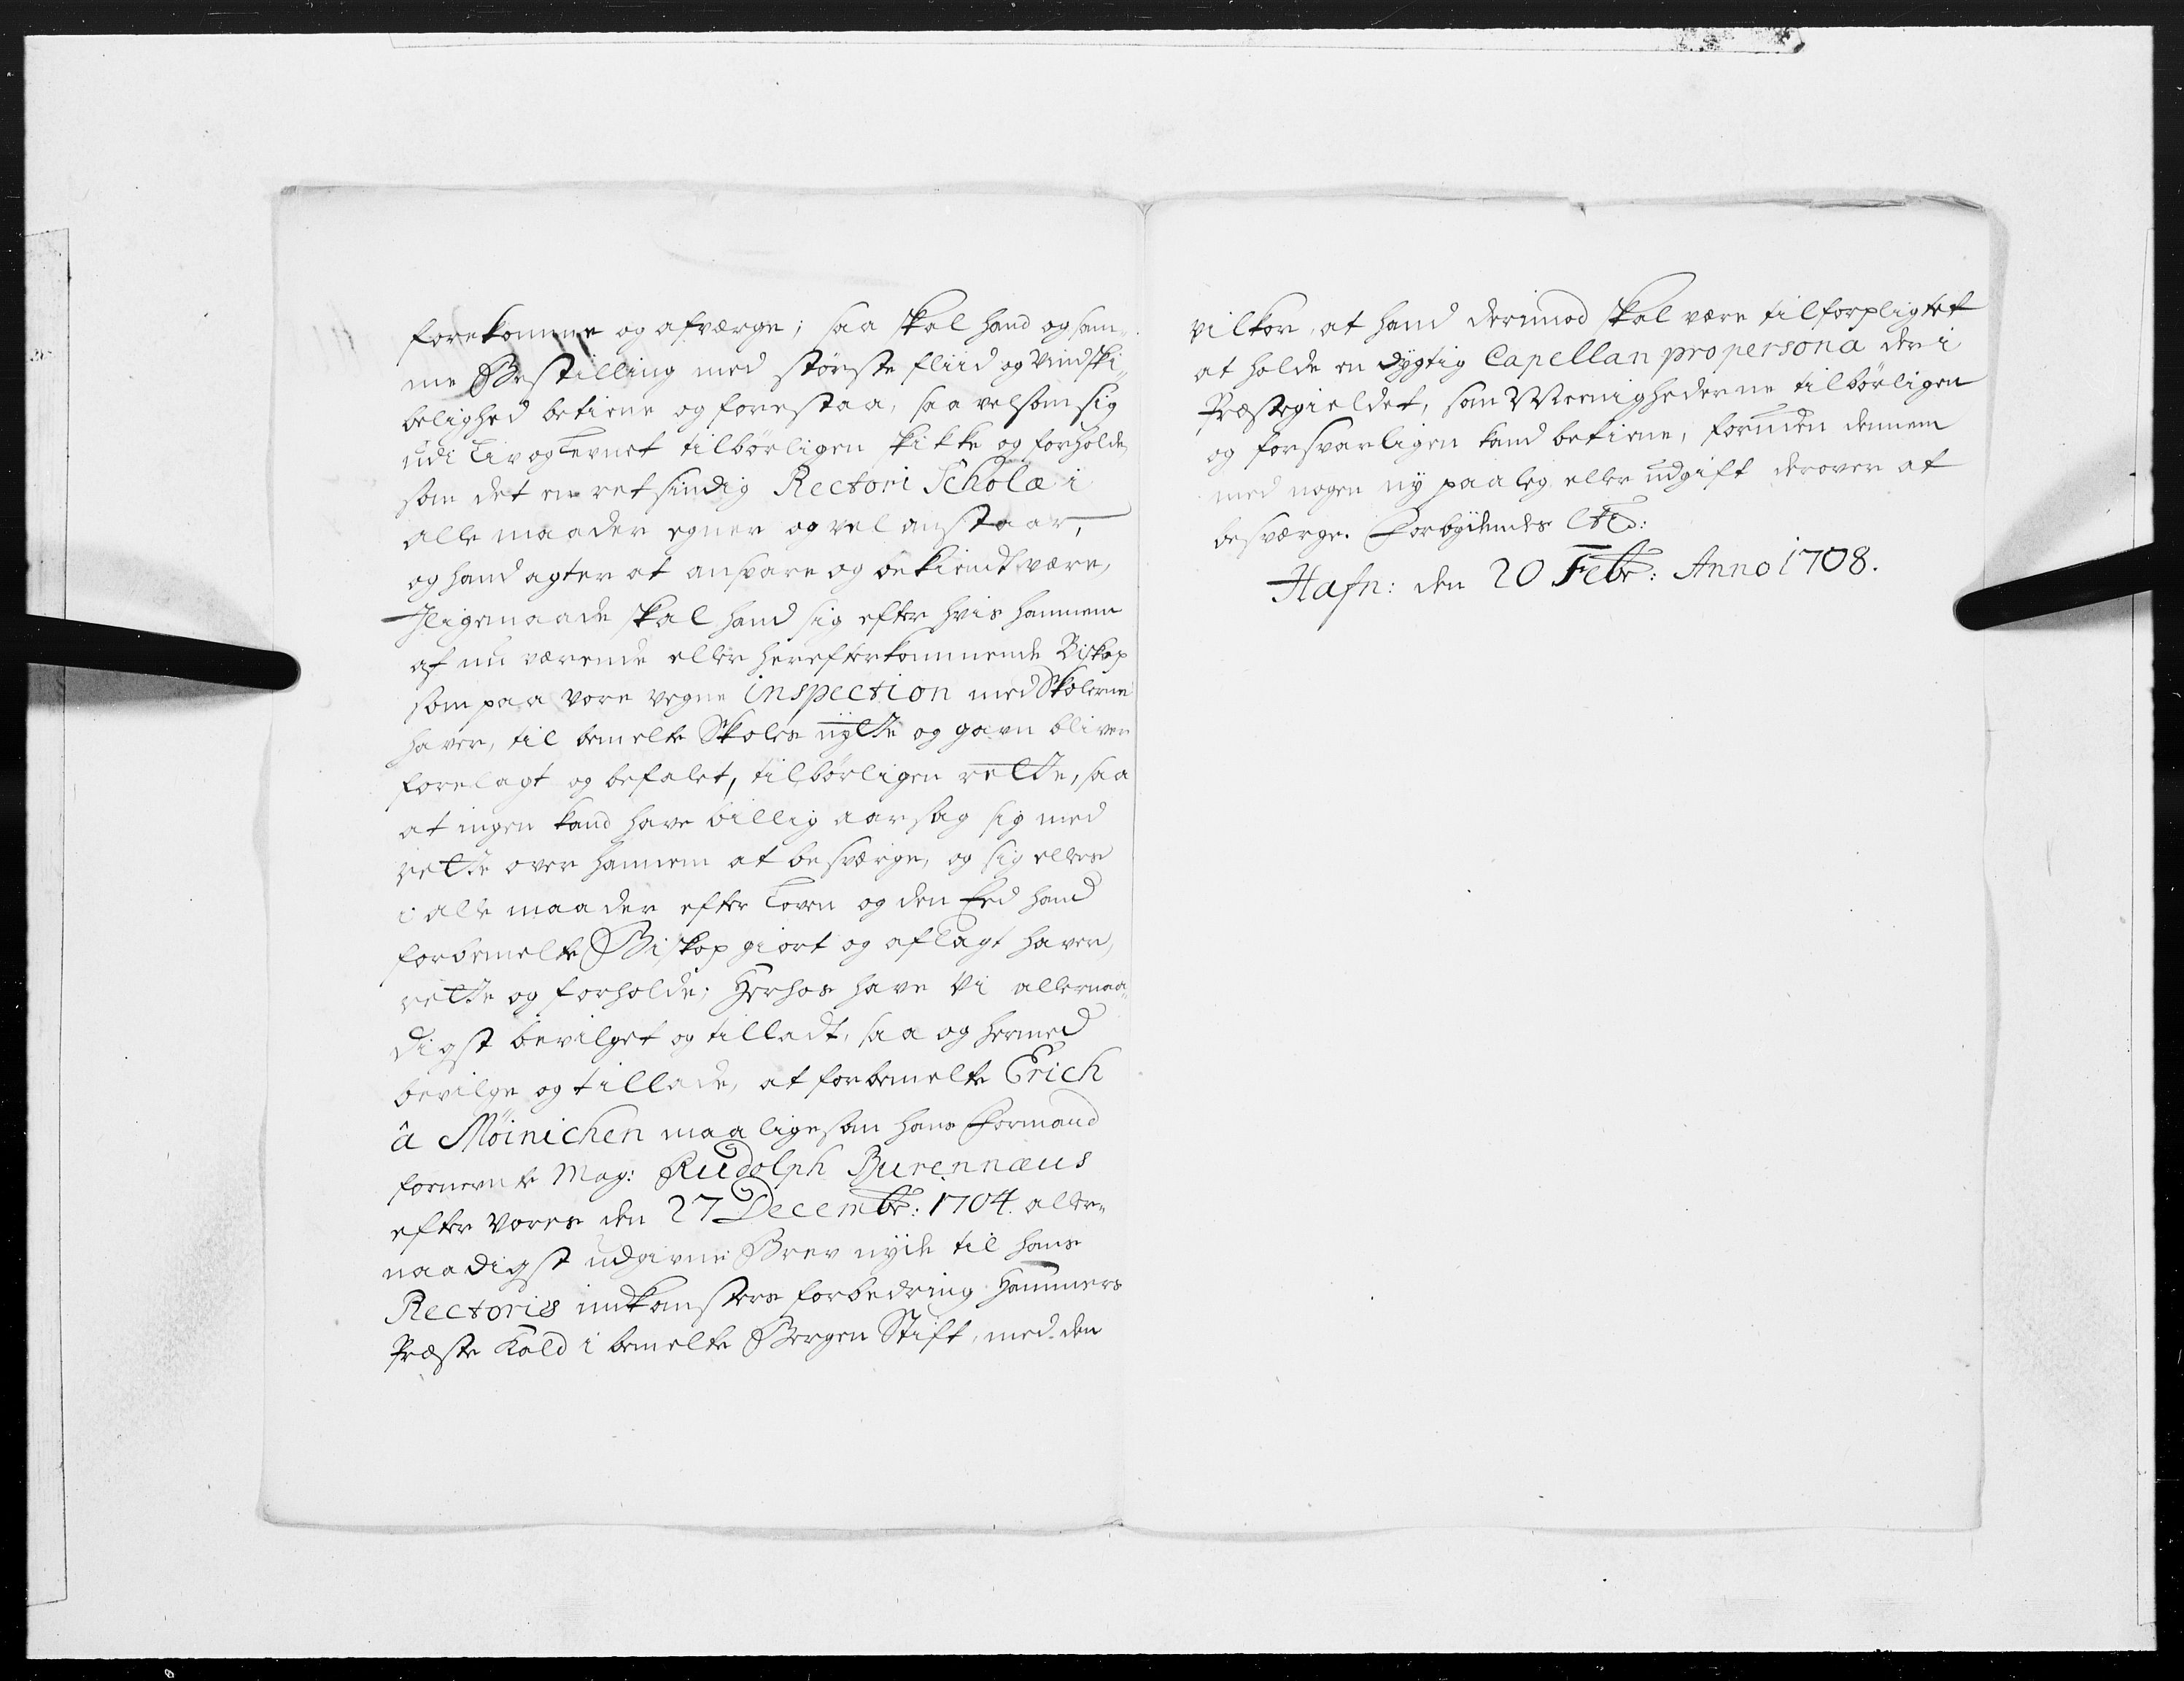 forekomme og afværge; saa skal hand og sam¬
me Bestilling med største fliid og Vindski¬
belighed betiene og forestaa, saavelsom sig
udi Liv og Levnet tilbørligen skikke og forholde,
som det en retsindig Rectori Scholæ i
alle maader egner og vel anstaar,
og hand agter at ansvare og bekiendt være,
Jligemaade skal hand sig efter hvis hannem
af nu værende eller herefterkommende Biskop
som paa vore vegne inspection med Skolerne
haver, til bemelte Skoles nytte og gavn bliver
forelagt og befalet, tilbørligen rette, saa
at ingen kand have billig aarsag sig med
rette over hannem at besværge, og sig ellers
i alle maader efter Loven og den Eed hand
forbemelte Biskop giort og aflagt haver,
rette og forholde; Herhos have Vi allernaa¬
digst bevilget og tilladt, saa og hermed
bevilge og tillade, at forbemelte Erich
â Möinichen maa ligesom hans Formand
fornevnte Mag: Rudolph Burennæus
efter Vores den 27 Decembr: 1704. aller¬
naadigst udgivne Brev nyde til hans
Rectoris indkomsters forbedring Hammers
Præste Kald i bemelte Bergen Stift, med den
vilkor, at hand derimod skal være tilforpligtet
at holde en dygtig Capellan pro persona der i
Præstegieldet, som Meenighederne tilbørligen
og forsvarligen kand betiene, foruden dennem
med nogen ny paaleg eller udgift derover at
besværge. Forbydendes etc:
Hafn: den 20 Febr: Anno 1708.